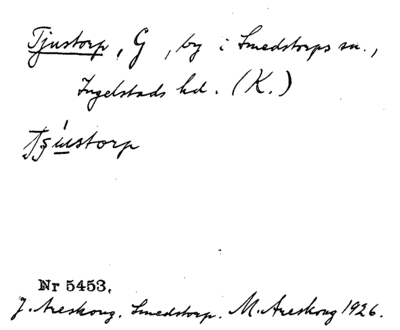 Tjustorp, G, by i Smedstorps sn.,
Ingelstads hd. (K.)
Nr 5453.
J. Areskoug. Smedstorp. M. Areskoug 1926.